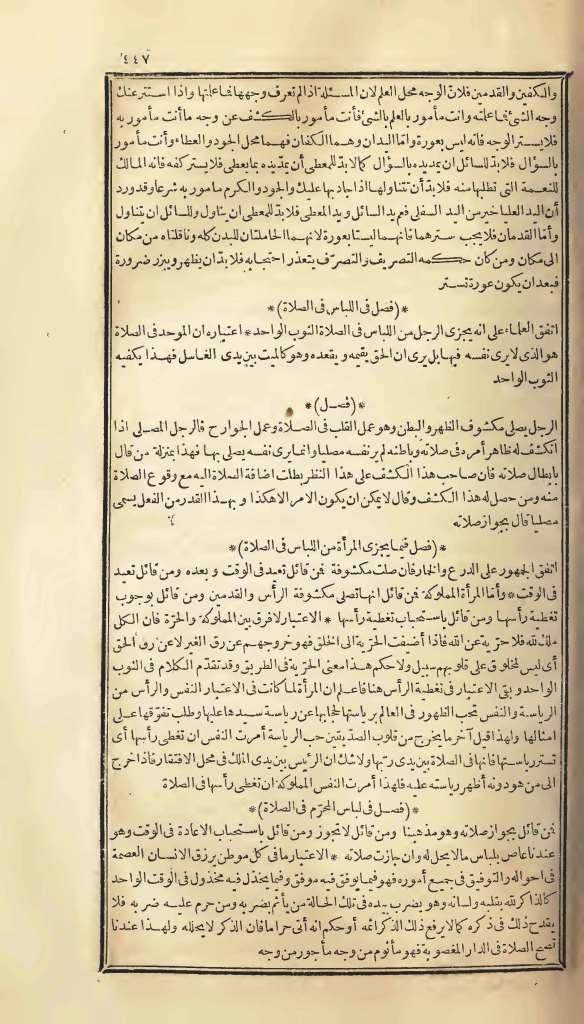 ٤٤٧
والكفين والقدمين فلان الوجه محل العلم لان المسئلة اذا لم تعرف وجهها فما علمتها واذا استتر عنك
وجه الشئ فما علمته وانت مأمور بالعلم بالشئ فأنت مأمور بالكشف عن وجه ما أنت مأمور به
فلا يستر الوجه فانه ليس بعورة وأما اليدان وهما الكفان فهما محل الجود والعطاء وأنت مأمور
بالسؤال فلا بد للسائل ان يمد يده بالسؤال كما لا بد للمعطى أن يمد يده بما يعطى فلا يستر كفه فانه المالك
للنعمة التى تطلبها منه فلا بد أن تتناولها اذا جاد بها عليك والجود والكرم مأمور به شرعا وقد ورد
أن اليد العليا خير من اليد السفلى فعم يد السائل ويد المعطى فلا بد للمعطى ان يناول وللسائل ان يتناول
وأما القدمان فلا يجب سترهما فانهما ليستا بعورة لانهما الحاملتان للبدن كله وناقلتاه من مكان
الى مكان ومن كان حكمه التصريف والتصرف يتعذر احتجابه فلا بد ان يظهر ويبرز ضرورة
فبعد ان يكون عورة تستر
*(فصل فى اللباس فى الصلاة)*
اتفق العلماء على انه يجزى الرجل من اللباس فى الصلاة الثوب الواحد * اعتباره ان الموحد فى الصلاة
هو الذى لا يرى نفسه فيها بل يرى ان الحق يقيمه ويقعده وهو كالميت بين يدى الغاسل فهذا يكفيه
الثوب الواحد
*(فصل)*
الرجل يصلى مكشوف الظهر والبطن وهو عمل القلب فى الصلاة وعمل الجوارح فالرجل المصلى اذا
انكشف له ظاهر أمره فى صلاته وباطنه لم ير نفسه مصليا وانما يرى نفسه يصلى بها فهذا بمنزلة من قال
بابطال صلاته فان صاحب هذا الكشف على هذا النظر بطلت اضافة الصلاة اليه مع وقوع الصلاة
منه ومن حصل له هذا الكشف وقال لا يمكن ان يكون الامر الا هكذا وبهذا القدر من الفعل يسمى
مصليا قال بجواز صلاته
*(فصل فيما يجزى المرأة من اللباس فى الصلاة)*
اتفق الجمهور على الدرع والخمار فان صلت مكشوفة فمن قائل تعيد فى الوقت و بعده ومن قائل تعيد
فى الوقت * وأما المرأة المملوكة فمن قائل انها تصلى مكشوفة الرأس والقدمين ومن قائل بوجوب
تغطية رأسها ومن قائل باستحباب تغطية رأسها * الاعتبار لا فرق بين المملوكة والحرة فان الكل
ملك لله فلا حرية عن الله فاذا أضيفت الحرية الى الخلق فهو خروجهم عن رق الغير لا عن رق الحق
أى ليس لمخلوق على قلوبهم سبيل ولا حكم هذا معنى الحرية فى الطريق وقد تقدم الكلام فى الثوب
الواحد وبقى الاعتبار فى تغطية الرأس هنا فاعلم ان المرأة لما كانت فى الاعتبار النفس والرأس من
الرياسة والنفس تحب الظهور فى العالم برياستها لحجابها عن رياسة سيدها عليها وطلب تفوقها على
امثالها ولهذا قيل آخر ما يخرج من قلوب الصديقين حب الرياسة أمرت النفس ان تغطى رأسها أى
تستر رياستها فانها فى الصلاة بين يدى ربها ولا شك ان الرئيس بين يدى الملك فى محل الافتقار فاذا خرج
الى من هو دونه أظهر رياسته عليه فلهذا أمرت النفس المملوكة ان تغطى رأسها فى الصلاة
*(فصل فى لباس المحرم فى الصلاة)*
فمن قائل بجواز صلاته وهو مذهبنا ومن قائل لا تجوز ومن قائل باستحباب الاعادة فى الوقت وهو
عندنا عاص بلباس ما لا يحل له وان جازت صلاته * الاعتبار ما فى كل موطن يرزق الانسان العصمة
فى احواله والتوفيق فى جميع أموره فهو فيما يوفق فيه موفق وفيما يخذل فيه مخذول فى الوقت الواحد
كالذاكر لله بقلبه ولسانه وهو يضرب بيده فى تلك الحالة من يأثم بضربه ومن حرم عليه ضربه فلا
يقدح ذلك فى ذكره كما لا يرفع ذلك الذكر اثمه أو حكم انه أتى حراما فان الذكر لا يحلله ولهذا عندنا
تصح الصلاة فى الدار المغصوبة فهو مأثوم من وجه مأجور من وجه